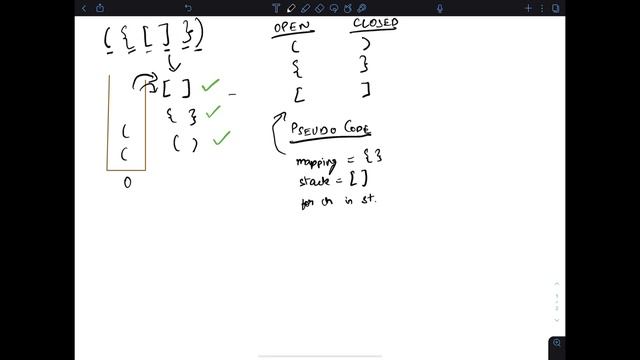 ( { [ ] } )
[ ]
{ }
( )
(
(
0
OPEN CLOSED
( )
{ }
[ ]
PSEUDO CODE
mapping = { }
stack = [ ]
for ch in st.